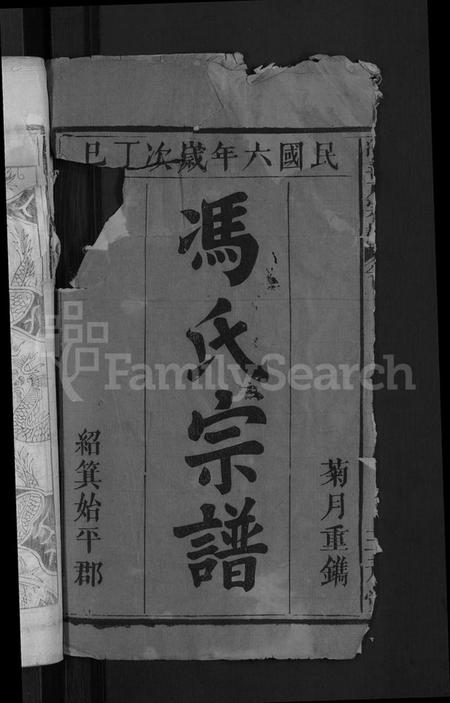 民國六年歲次丁巳
菊月重鐫
馮氏宗譜
紹箕始平郡
FamilySearch